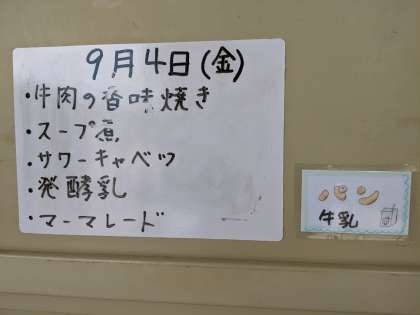 9月4日(金)
・牛肉の香味焼き
・スープ煮
・サワーキャベツ
・発酵乳
・マーマレード
パン
牛乳